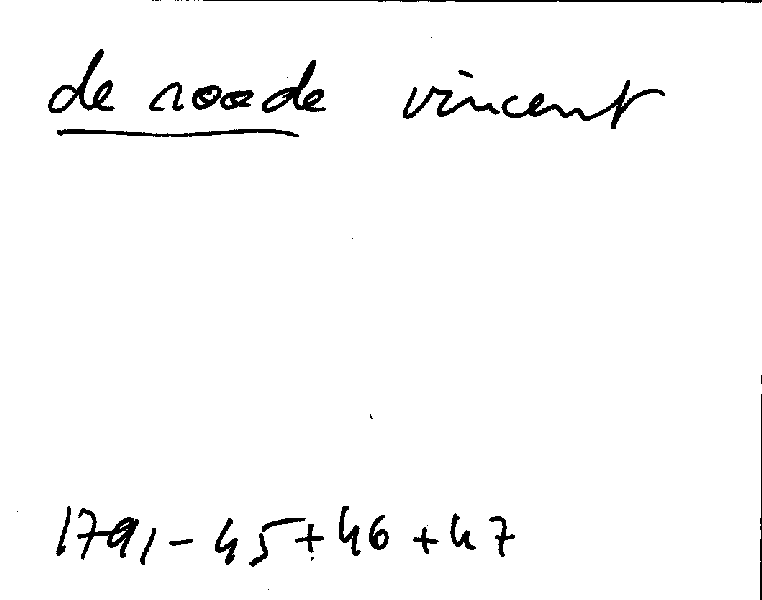 de roode vincent
1791 - 45 + 46 + 47